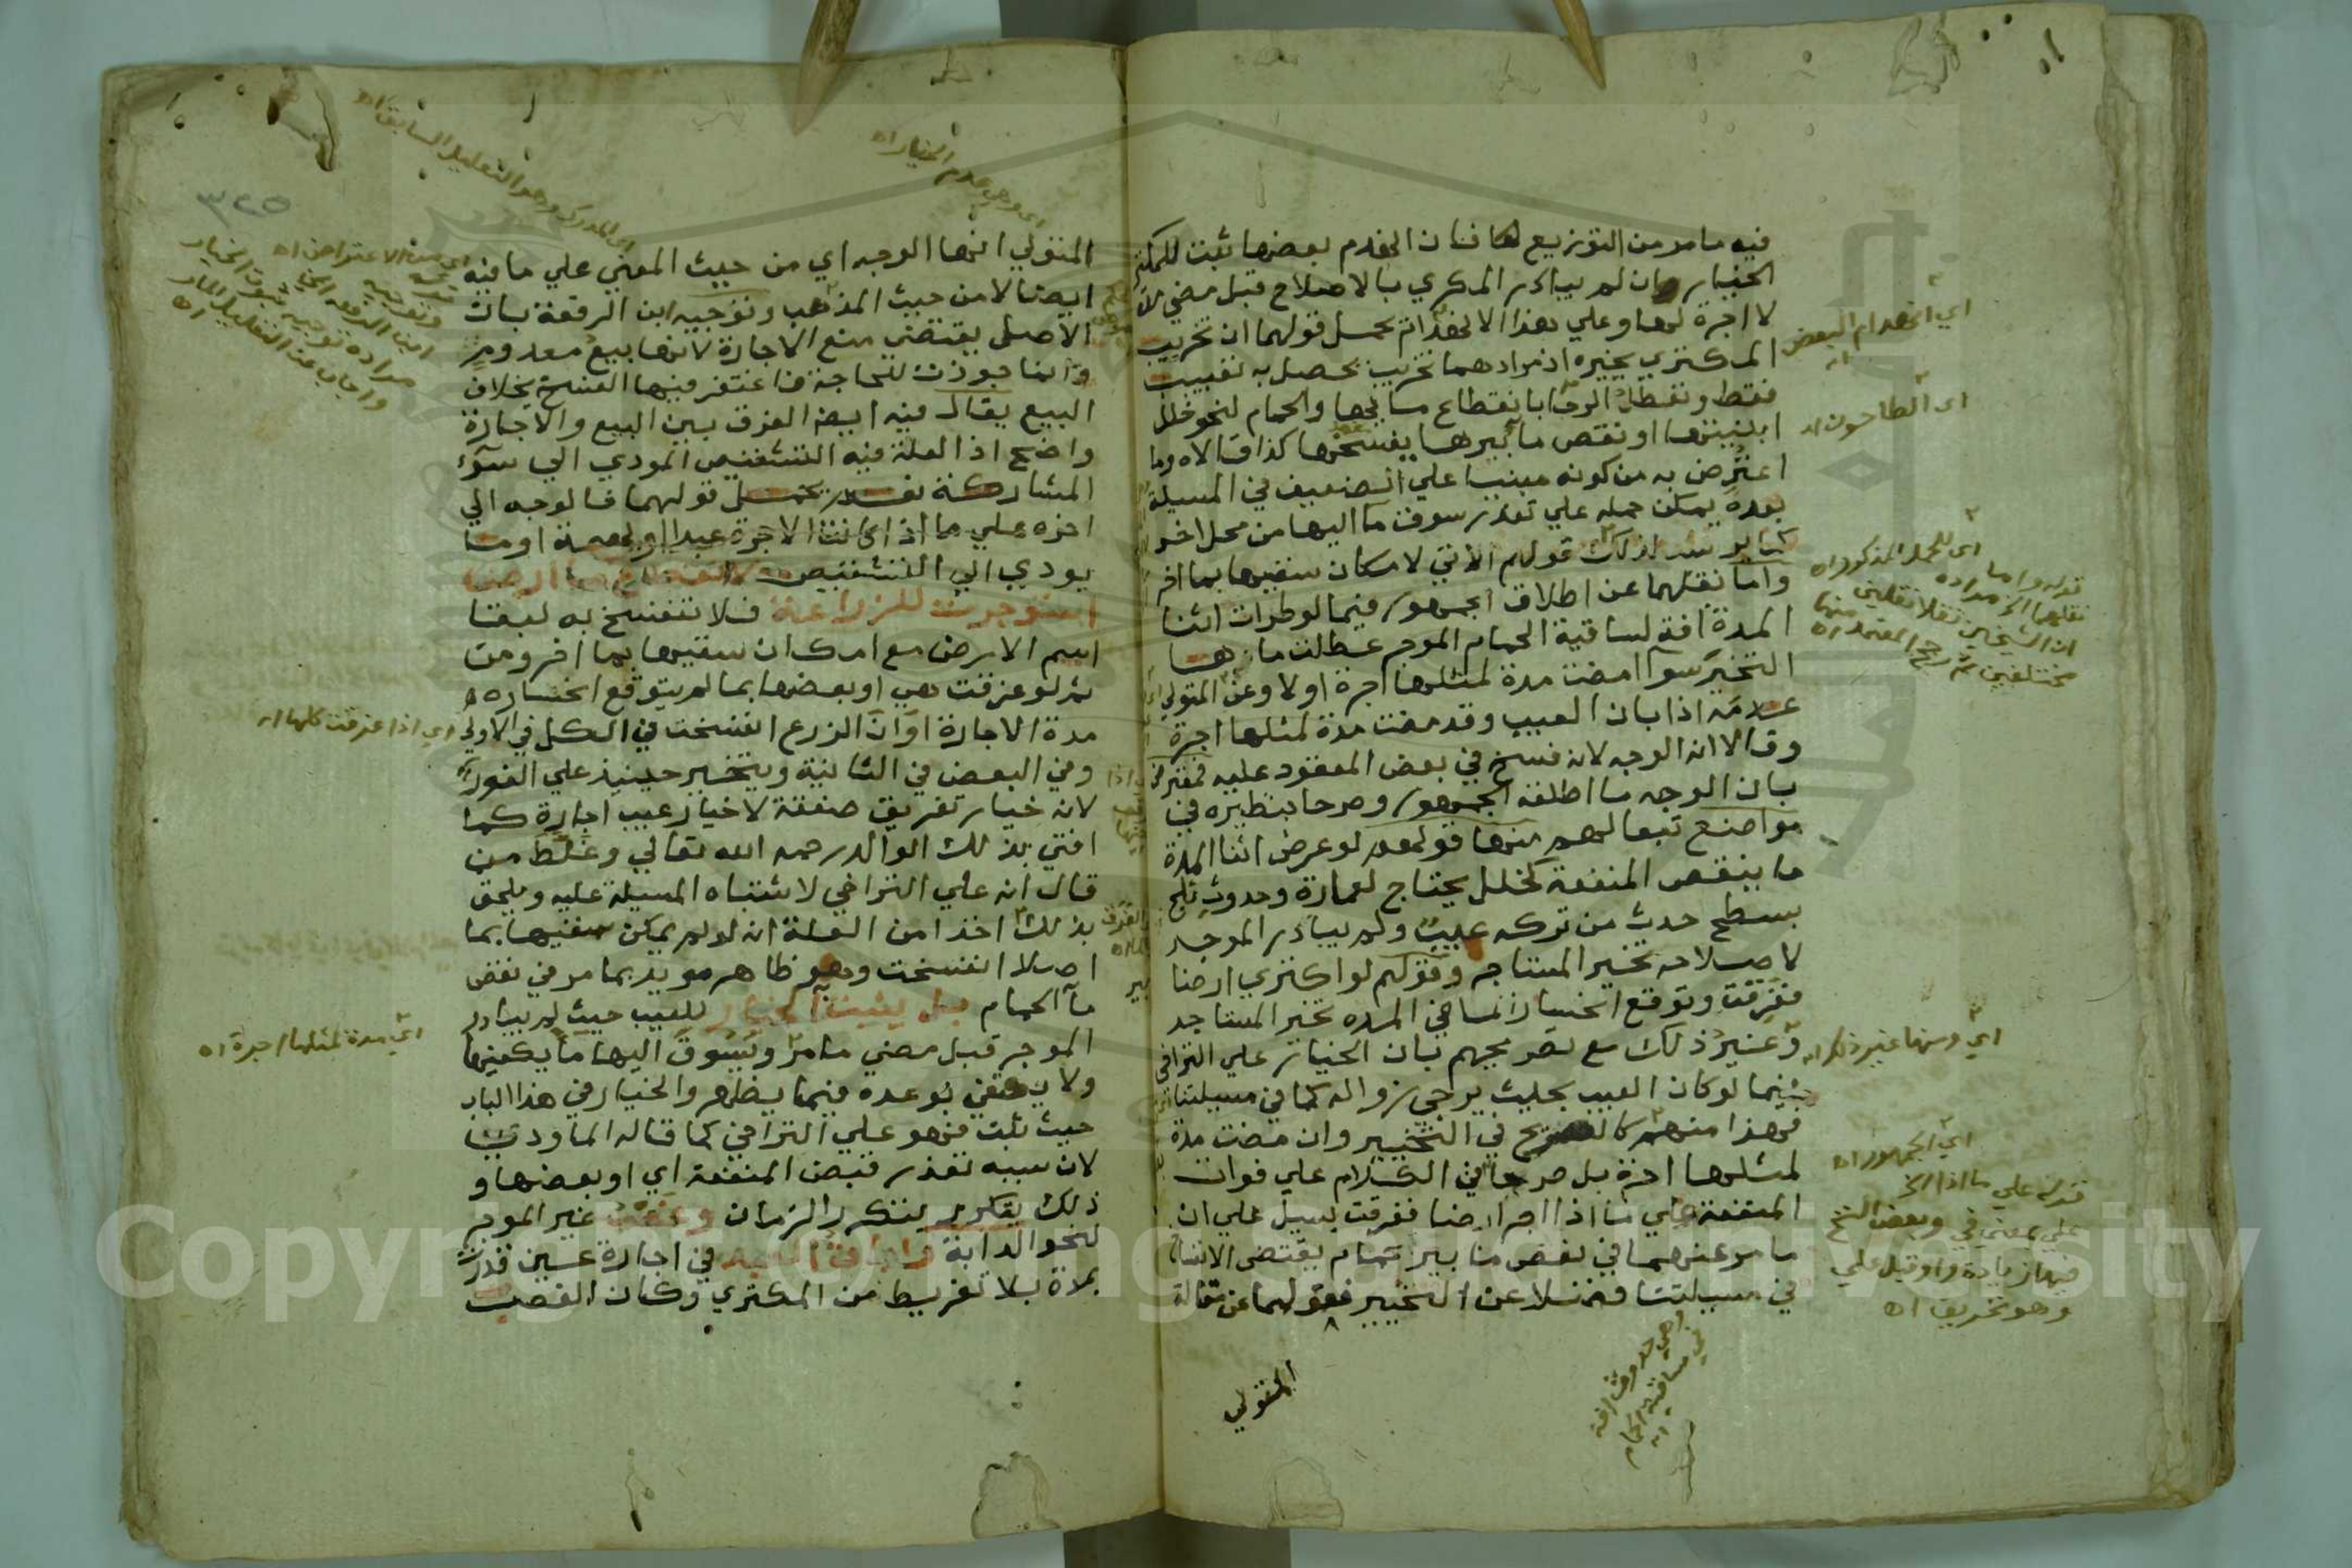 فيه ما مر من التوزيع لها فان انهدم بعضها ثبت للمكتري
الخيار وان لم يبادر المكري بالاصلاح قبل مضي مدة
لا اجرة لها وعلي هذا الانهدام يحمل قولهما ان تخريب
المكتري يخيره اذ مرادهما تخريب يحصل به تعييب
فقط وتعطل الرحا بانقطاع مائها والحمام لنحو خلل
ابنيتها او نقص ما بيرها يفسخها كذا قالاه وما
اعترض به من كونه مبنيا علي الضعيف في المسيلة
بعده يمكن حمله علي تعذر سوق ما اليها من محل اخر
كما يرشد لذلك قولهم الاتي لامكان سقيها بما اخر
واما نقلهما عن اطلاق الجمهور فيما لو طرات اثنا
المدة افة لساقية الحمام الموجر عطلت ماها
التخير سوآ امضت مدة لمثلها اجرة اولا وعن المتولي
عدمه اذا بان العيب وقد مضت مدة لمثلها اجرة
وقالا انه الوجه لانه فسخ في بعض المعقود عليه فمعترض
بان الوجه ما اطلقه الجمهور وصرحا بنظيره في
مواضع تبعا لهم منها قولهم لو عرض اثنا المدة
ما ينقص المنفعة كخلل يحتاج لعمارة وحدوث ثلج
بسطح حدث من تركه عيب ولم يبادر الموجر
لاصلاحه تخير المستاجر وقولهم لو اكتري ارضا
فغرقت وتوقع انحسارا لما في المدة تخير المستاجر
وغير ذلك مع تصريحهم بان الخيار علي التراخي
فيما لو كان العيب بحيث يرجي زواله كما في مسيلتنا
فهذا منهم كالصريح في التخيير وان مضت مدة
لمثلها اجرة بل صرحا في الكلام علي فوات
المنفعة علي ما اذا اجر ارضا فغرقت بسيل علي ان
ما مر عنهما في نقص ما بير حمام يقتضي الانفساخ
في مسيلتنا فضلا عن التخيير فقولهما عن مقالة
المتولي
اي انهدام البعض اه
اي الطاحون اه
اي للحمل المذكور اه
قوله واما
نقلهما الخ مراده
ان الشيخين نقلا نقلين
مختلفين ثم رجح المعتمد منها اه
اي ومنها غير ذلك اه
اي الجمهور اه
قوله علي ما اذا الخ
علي بمعني في وبعض النسخ
فيها زيادة واو قبل علي
وهو تحريف اه
وهي حدوث افة
في ساقية الحمام اه
المتولي انها الوجه اي من حيث المعني علي ما فيه
ايضا لا من حيث المذهب وتوجيه ابن الرفعة بان
الاصل يقتضي منع الاجارة لانها بيع معدوم
وانما جوزت للحاجة فاغتفر فيها الفسخ بخلاف
البيع يقال فيه ايضا الفرق بين البيع والاجارة
واضح اذ العلة فيه التشقيص المودي الي سوء
المشاركة نعم يحمل قولهما فالوجه الي
اخره علي ما اذا كانت الاجرة عبدا او بهيمة او ما
يودي الي التشقيص لا انقطاع ما ارض
استوجرت للزراعة فلا تنفسخ به لبقا
اسم الارض مع امكان سقيها بما اخر ومن
ثم لو غرقت هي او بعضها بما لم يتوقع انحساره
مدة الاجارة او ان الزرع انفسخت في الكل في الاولي
وفي البعض في الثانية ويتخير حينيذ علي الفور
لانه خيار تفريق صفقة لا خيار عيب اجارة كما
افتي بذلك الوالد رحمه الله تعالي وغلط من
قال انه علي التراخي لاشتباه المسيلة عليه ويلحق
بذلك اخذا من العلة انه لو لم يمكن سقيها بما
اصلا انفسخت وهو ظاهر مويد بما مر في نقص
مآ الحمام بل يثبت الخيار للعيب حيث لم يبادر
الموجر قبل مضي ما مر ويسوق اليها ما يكفيها
ولا يكتفي بوعده فيما يظهر والخيار في هذا الباب
حيث ثبت فهو علي التراخي كما قاله الماوردي
لان سببه تعذر قبض المنفعة اي او بعضها و
ذلك يتكرر بتكرر الزمان وغصب غير الموجر
لنحو الدابة واباق العبد في اجارة عين قدرت
بمدة بلا تفريط من المكتري وكان الغصب
٣٢٥
اي وهي عدم الخيار اه
اي المدرك وهو التعليل السابق اه
اي اذا غرقت كلها اه
اي مدة لمثلها اجرة اه